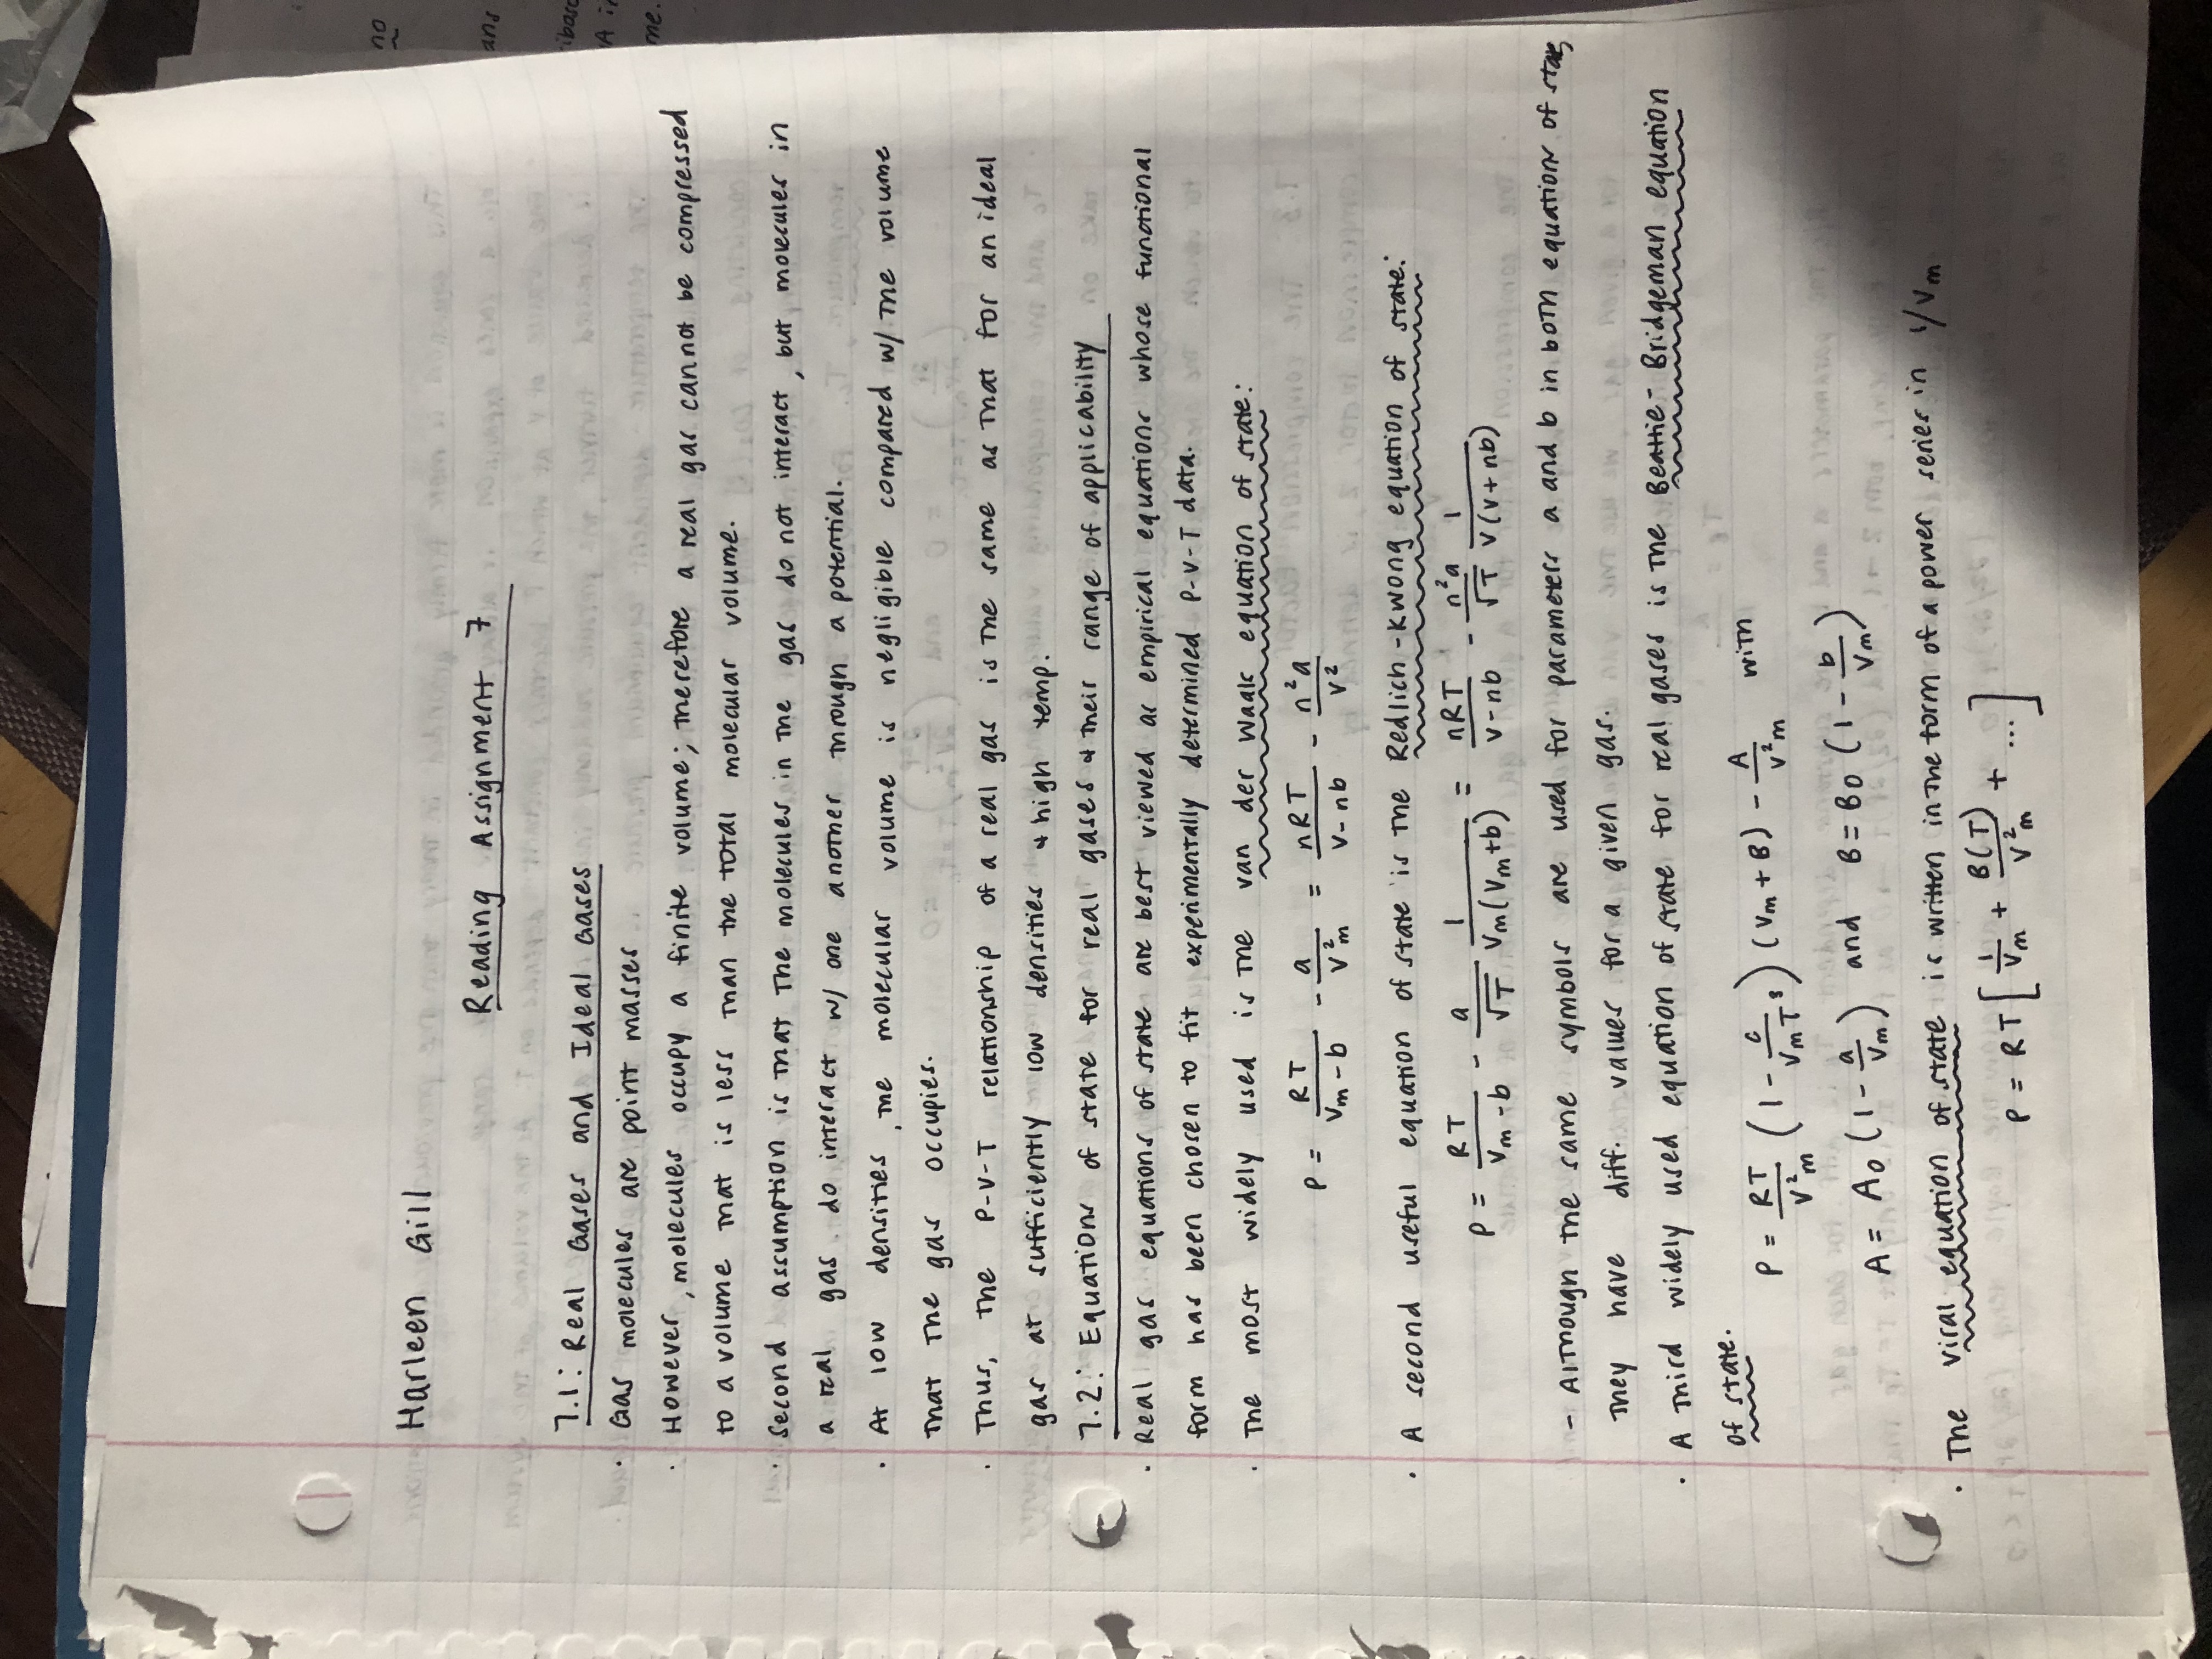 Harleen Gill
Reading Assignment 7
7.1: Real Gases and Ideal Gases
· Gas molecules are point masses
· However, molecules occupy a finite volume; therefore a real gas cannot be compressed
to a volume that is less than the total molecular volume.
· Second assumption is that the molecules in the gas do not interact, but molecules in
a real gas do interact w/ one another through a potential.
· At low densities, the molecular volume is negligible compared w/ the volume
that the gas occupies.
· Thus, the P-V-T relationship of a real gas is the same as that for an ideal
gas at sufficiently low densities & high temp.
7.2: Equations of state for real gases & their range of applicability
· Real gas equations of state are best viewed as empirical equations whose functional
form has been chosen to fit experimentally determined P-V-T data.
· The most widely used is the van der Waals equation of state:
P = RT/(Vm - b) - a/V²m = nRT/(V - nb) - n²a/V²
· A second useful equation of state is the Redlich-Kwong equation of state:
P = RT/(Vm - b) - a/√T 1/(Vm(Vm+b)) = nRT/(V - nb) - n²a/√T 1/(V(V+nb))
- Although the same symbols are used for parameters a and b in both equations of state,
they have diff. values for a given gas.
· A third widely used equation of state for real gases is the Beattie-Bridgeman equation
of state.
P = RT/V²m (1 - c/(VmT³)) (Vm + B) - A/V²m with
A = A0 (1 - a/Vm) and B = B0 (1 - b/Vm)
· The viral equation of state is written in the form of a power series in 1/Vm
P = RT [1/Vm + B(T)/V²m + ...]
no
ans
me.